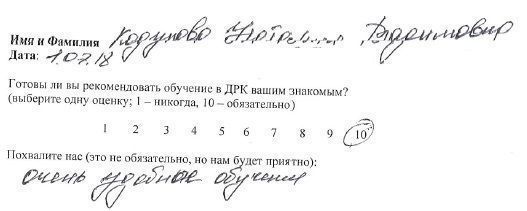 Имя и Фамилия Кодунова Наталия Вадимовна
Дата: 1.07.18
Готовы ли вы рекомендовать обучение в ДРК вашим знакомым?
(выберите одну оценку; 1 – никогда, 10 – обязательно)
1 2 3 4 5 6 7 8 9 10
Похвалите нас (это не обязательно, но нам будет приятно):
очень удобное обучение